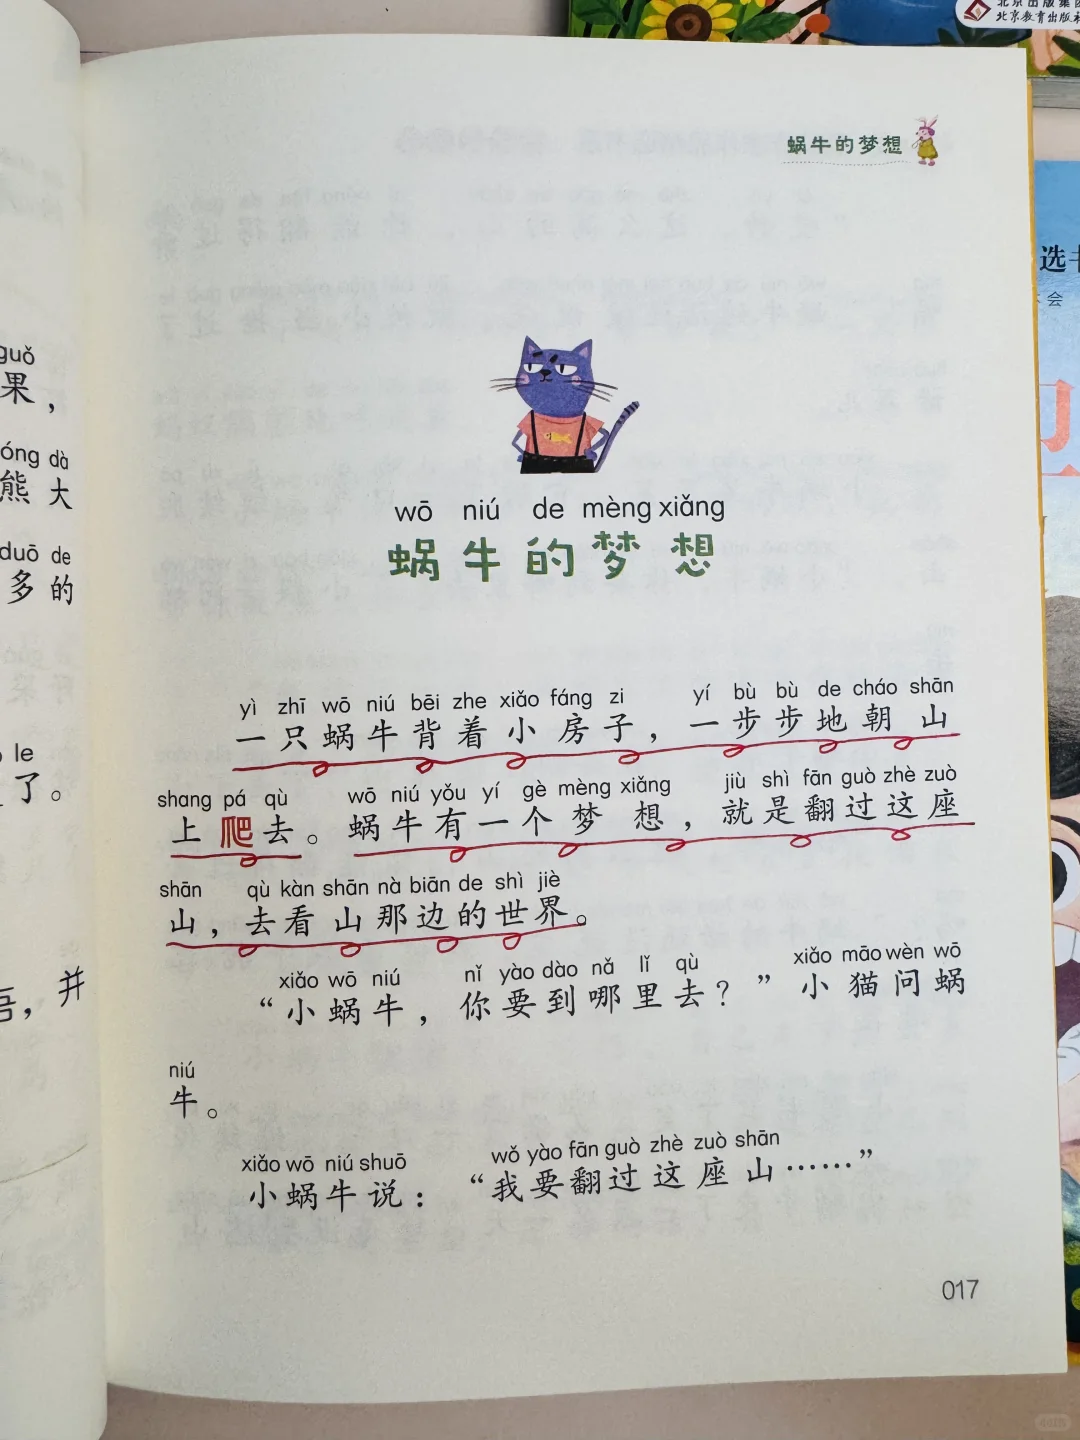 北京出版集团
北京教育出版社
蜗牛的梦想
guǒ
果，
dà
熊大
duō de
多的
le
了。
，并
wō niú de mèng xiǎng
蜗牛的梦想
yì zhī wō niú bēi zhe xiǎo fáng zi yí bù bù de cháo shān
一只蜗牛背着小房子，一步步地朝山
shang pá qù wō niú yǒu yí gè mèng xiǎng jiù shì fān guò zhè zuò
上爬去。蜗牛有一个梦想，就是翻过这座
shān qù kàn shān nà biān de shì jiè
山，去看山那边的世界。
xiǎo wō niú nǐ yào dào nǎ lǐ qù xiǎo māo wèn wō
“小蜗牛，你要到哪里去？”小猫问蜗
niú
牛。
xiǎo wō niú shuō wǒ yào fān guò zhè zuò shān
小蜗牛说：“我要翻过这座山……”
017